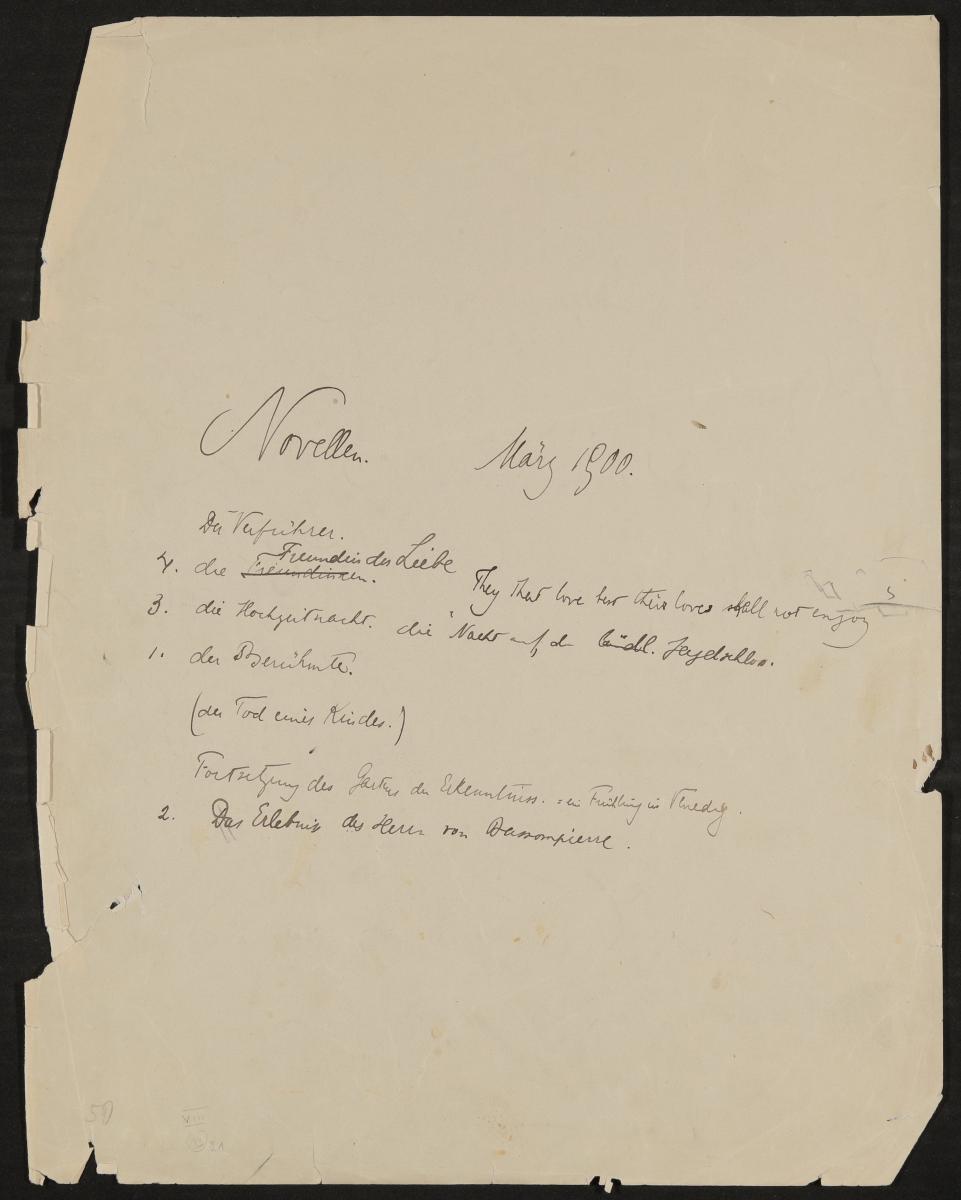 Novellen. März 1900.
Der Verführer.
Freundin der Liebe
4. die Freundinnen.
They that love best their loves shall not enjoy
3. die Hochzeitnacht. die Nacht auf dem Jagdschloss.
1. der Berühmte.
(der Tod eines Kindes.)
Fortsetzung des Gartens der Erkenntniss. = ein Frühling in Venedig.
2. Das Erlebnis des Herrn von Bassompierre.
50 VIII
21